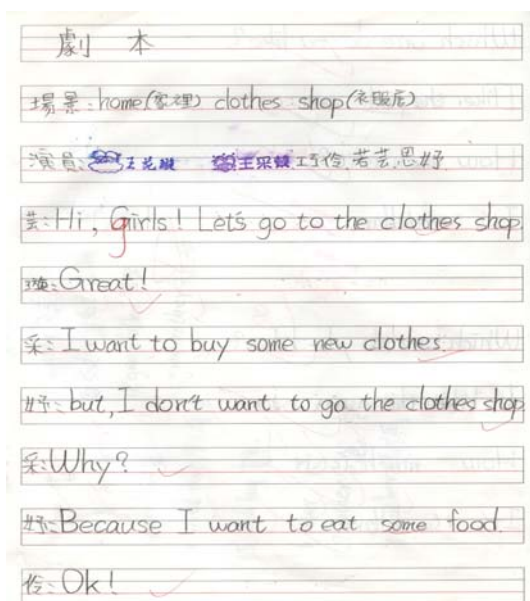 劇本
場景:home(家裡) clothes shop(衣服店)
演員: 王采 伶.若芸.思妤
芸:Hi, Girls! Let's go to the clothes shop.
璇:Great!
采:I want to buy some new clothes.
妤:but, I don't want to go the clothes shop
采:Why?
妤:Because I want to eat some food.
伶:Ok!